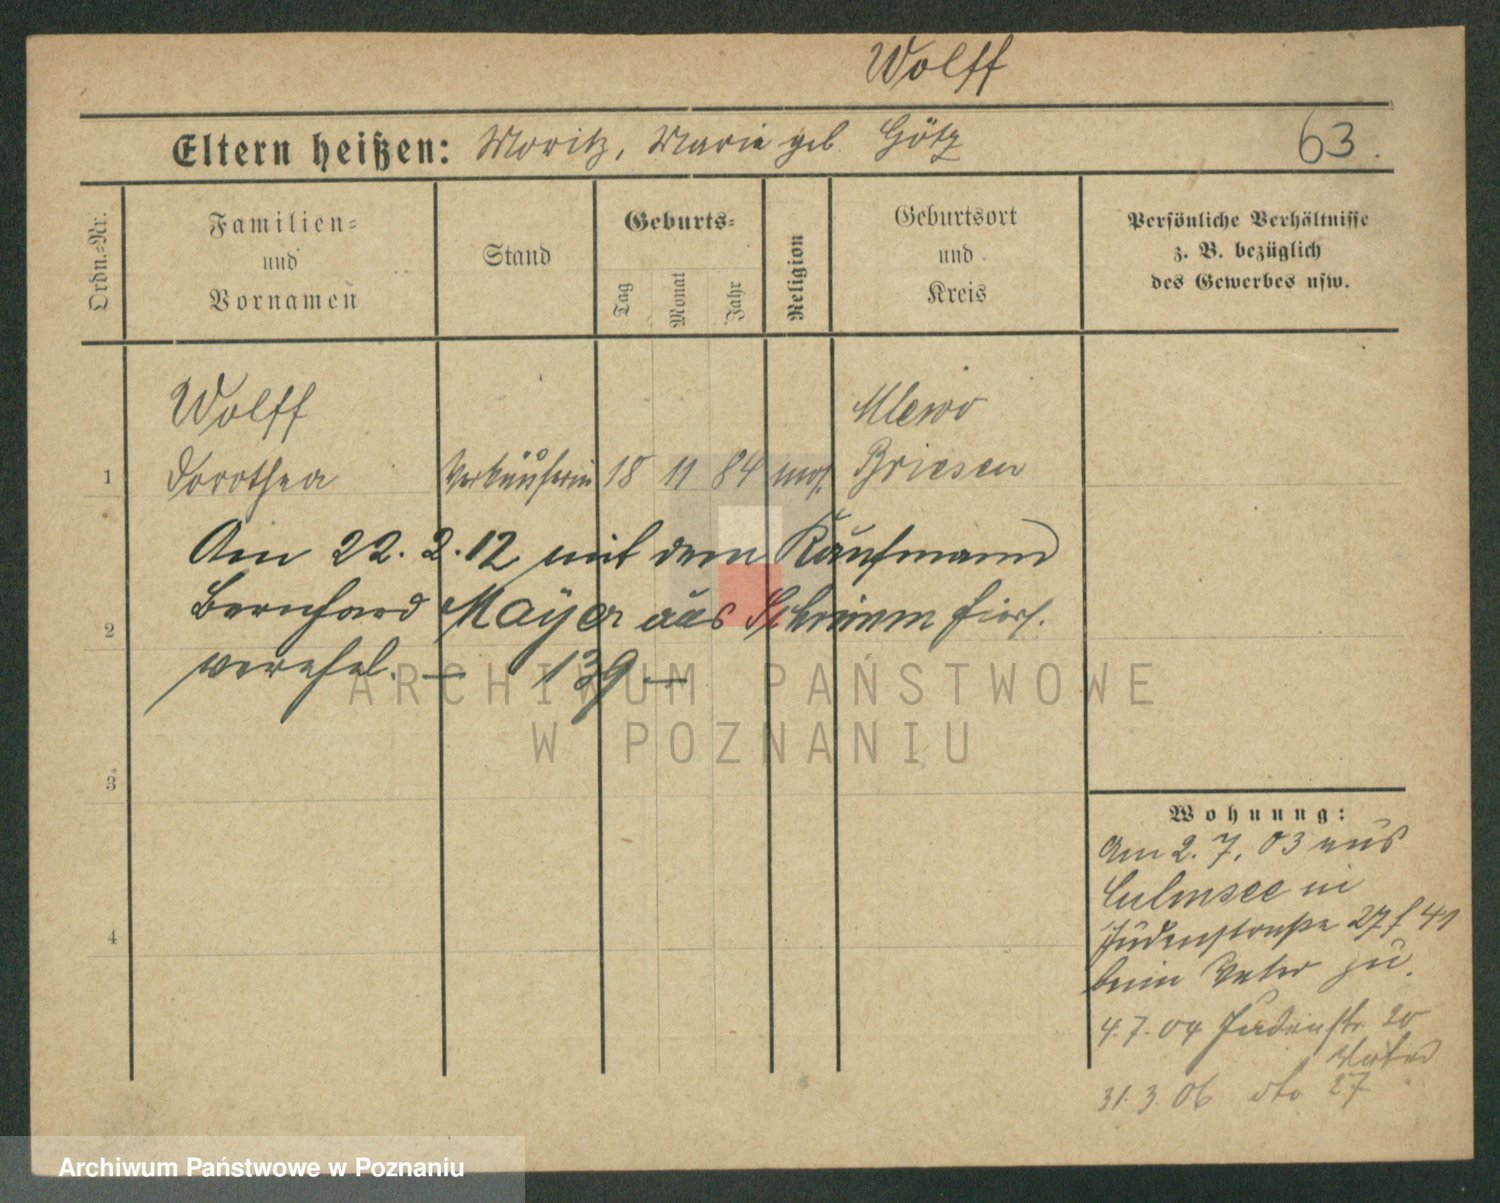 Wolff
Eltern heißen: Moritz, Marie geb. Götz
63.
Ordn.=Nr.
Familien=
und
Vornamen
Stand
Geburts=
Tag
Monat
Jahr
Religion
Geburtsort
und
Kreis
Persönliche Verhältnisse
z. B. bezüglich
des Gewerbes usw.
Wolff
Mlewo
1 Dorothea Verkäuferin 18 11 84 mos. Briesen
Am 22. 2. 12 mit dem Kaufmann
2 Bernhard Mayer aus Schrimm hers.
verehel. — 139 —
ARCHIWUM PAŃSTWOWE
W POZNANIU
3
4
Wohnung:
Am 2. 7. 03 aus
Culmsee in
Judenstraße 27 f 41
beim Vater zu.
4. 7. 04 Judenstr. 20
Vater
31. 3. 06 dto 27
Archiwum Państwowe w Poznaniu